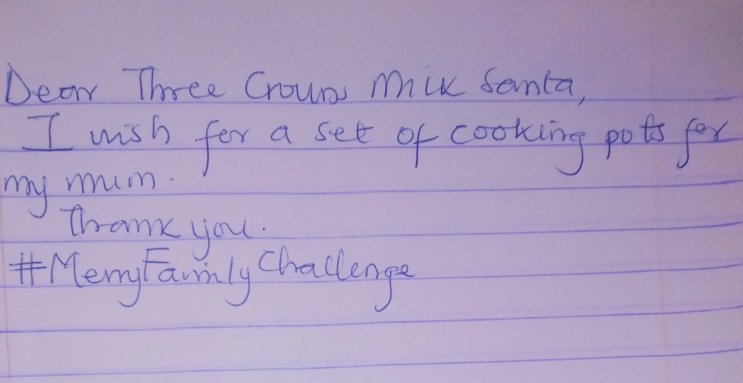 Dear Three Crowns Milk Santa,
I wish for a set of cooking pots for
my mum.
Thank you.
#MerryFamilyChallenge